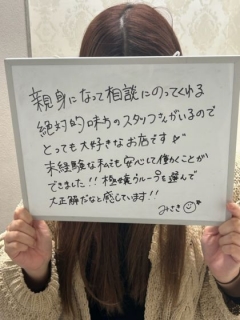 親身になって相談にのってくれる
絶対的味方のスタッフさんがいるので
とっても大好きなお店です
未経験な私でも安心して働くことが
できました!! 極嬢グループを選んで
大正解だなと感じています!!
みさき